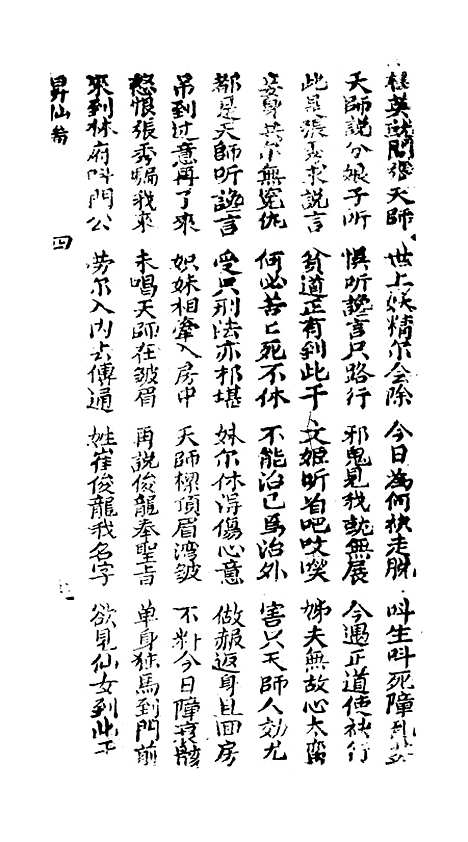 英就問後天師 世上妖精尔会除 今日為何袂走脫 呌生呌死障乱
天師說分娘子所 惧听讒言只路行 邪鬼見我就無展 今遇正道使袂行
此是張秀求說言 貧道正有到此于 文姬听着吧吱噗 姊夫無故心太蛮
妾身共尔無冤仇 何必苦亡死不休 不能治已馬治外 害只天師人効尤
都是天師听讒言 受只刑法亦邦堪 妹尔休得傷心意 做赧返身且回房
吊到过意再了來 姐妹相牽入房中 天師樑頂眉湾皺 不料今日障哀骸
愁恨張秀騙我來 未唱天師在皺眉 再說俊龍奉聖旨 单身馬到門前
來到林府呌門公 勞尔入内去傳通 姓崔俊龍我名字 欲見仙女到此于
昇仙 四